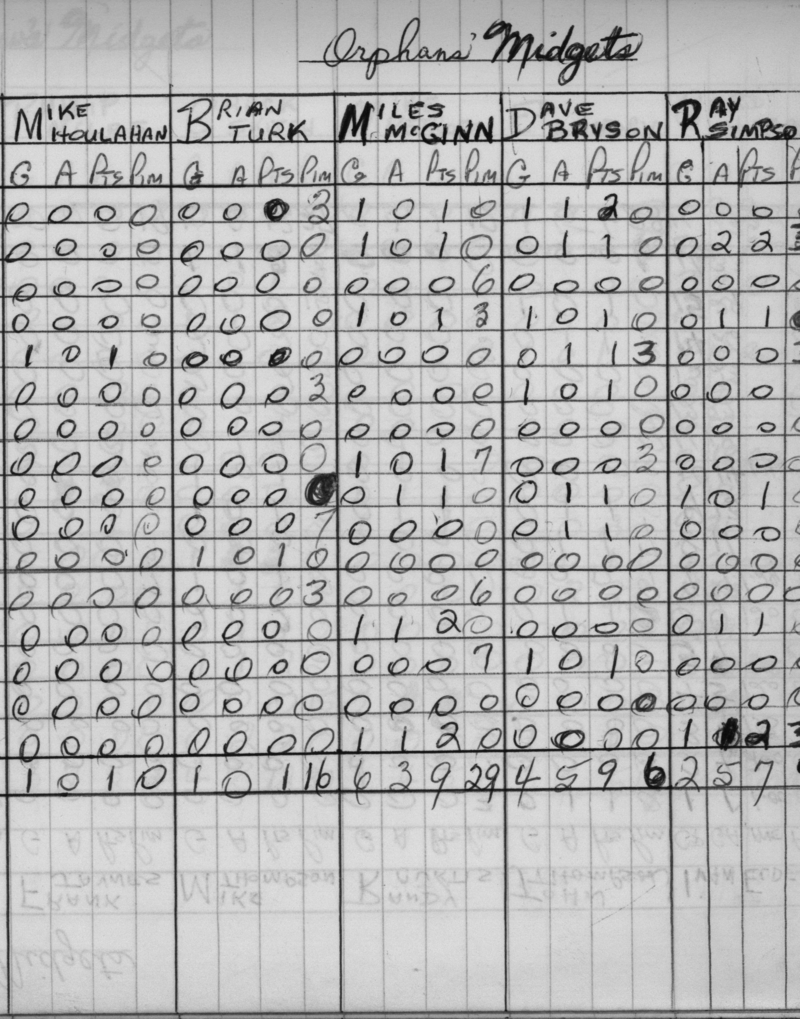 Orphans' Midgets
MIKE HOULAHAN BRIAN TURK MILES McGINN DAVE BRYSON RAY SIMPSO
G A Pts Pim G A Pts Pim G A Pts Pim G A Pts Pim G A Pts P
0 0 0 0 0 0 0 3 1 0 1 0 1 1 2 0 0 0 0
0 0 0 0 0 0 0 0 1 0 1 0 0 1 1 0 0 2 2 3
0 0 0 0 0 0 0 0 0 0 0 6 0 0 0 0 0 0 0
0 0 0 0 0 0 0 0 1 0 1 3 1 0 1 0 0 1 1
1 0 1 0 0 0 0 0 0 0 0 0 0 1 1 3 0 0 0
0 0 0 0 0 0 0 3 0 0 0 0 1 0 1 0 0 0 0
0 0 0 0 0 0 0 0 0 0 0 0 0 0 0 0 0 0 0
0 0 0 0 0 0 0 0 1 0 1 7 0 0 0 3 0 0 0
0 0 0 0 0 0 0 0 1 1 0 0 1 1 0 1 0 1
0 0 0 0 0 0 0 7 0 0 0 0 0 1 1 0 0 0 0
0 0 0 0 1 0 1 0 0 0 0 0 0 0 0 0 0 0 0
0 0 0 0 0 0 0 3 0 0 0 6 0 0 0 0 0 0 0
0 0 0 0 0 0 0 0 1 1 2 0 0 0 0 0 0 1 1
0 0 0 0 0 0 0 0 0 0 0 7 1 0 1 0 0 0 0
0 0 0 0 0 0 0 0 0 0 0 0 0 0 0 0 0 0 0
0 0 0 0 0 0 0 0 1 1 2 0 0 0 0 0 1 1 2 3
1 0 1 0 1 0 1 16 6 3 9 29 4 5 9 6 2 5 7